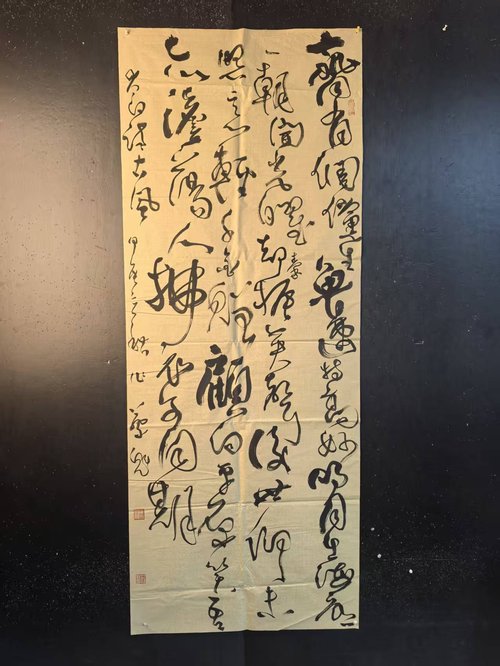 齊有倜儻生魯連特高妙明月出海底
一朝開光曜却秦振英聲後世仰末
照意輕千金贈顧向平原笑吾
亦澹蕩人拂衣可同調
太白詩古風